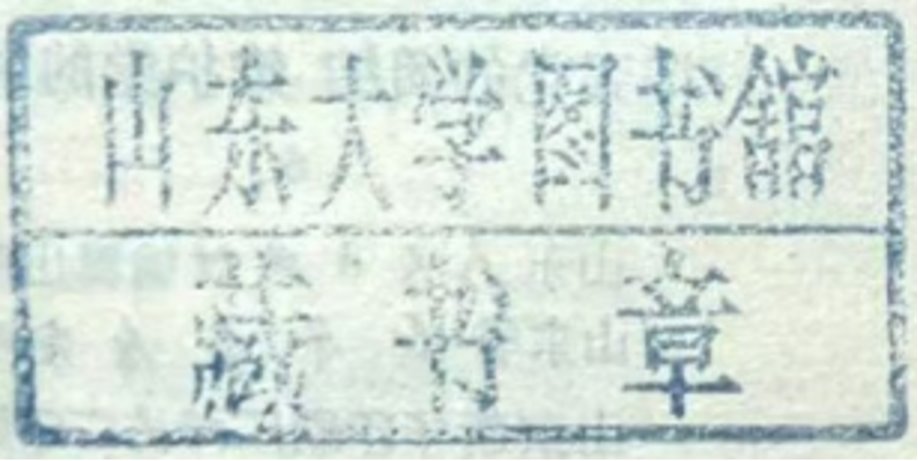 山东大学图书館
藏书章